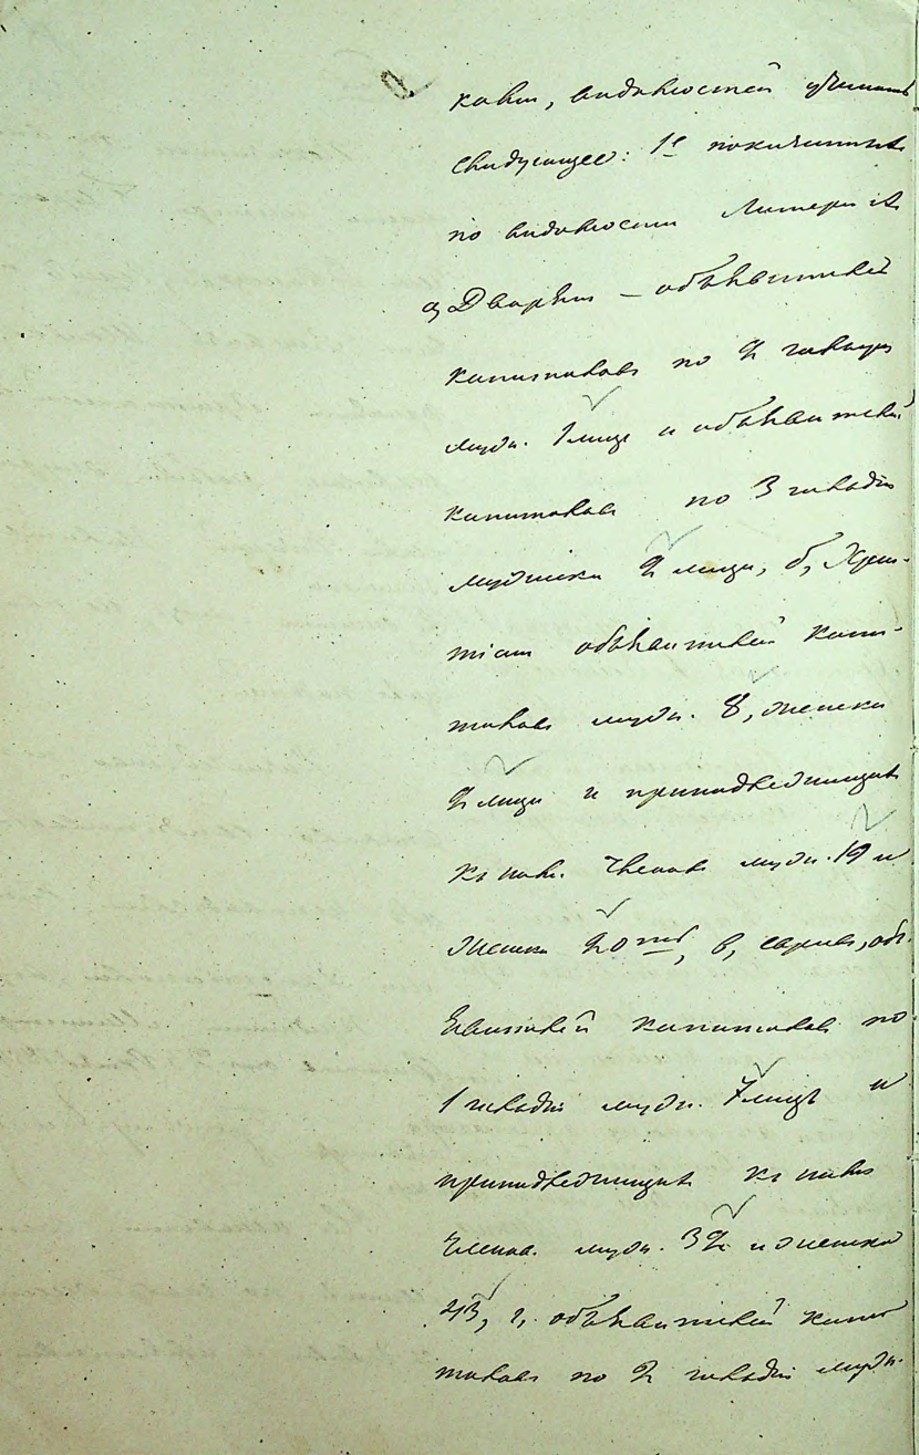 ковъ, ведомостей
следующее: 1е показанные
по ведомости Литера А
а, Дворянъ — объявителей
капиталовъ по 2 гильдіи
муж. 1 лицо и объявителей
капиталовъ по 3 гильдіи
мужеска 2 лица, б, Хрис-
тіан объявителей капи-
таловъ муж. 8, женска
2 лица и принадлежащихъ
къ нимъ членовъ муж. 19 и
женска 20, в, евреевъ, объ-
явителей капиталовъ по
1 гильдіи муж. 7 лицъ и
принадлежащихъ къ нимъ
членов. муж. 32 и женска
43, г, объявителей капи
таловъ по 2 гильдіи муж.